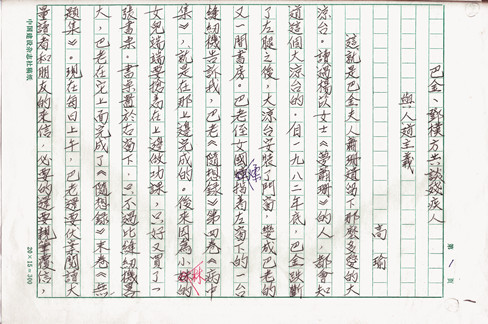 巴金、鄧樸方共談殘疾人
與人道主義
高瑜
這就是巴金夫人蕭珊造留下那麼多愛的大
涼台。讀過楊苡女士《夢蕭珊》的人，都會知
道這個大涼台的。自一九八二年底，巴金跌斷
了左腿之後，大涼台安裝了門窗，變成巴老的
又一間書房。巴老侄女國煣指着左窗下的一台
縫紉機告訴我，巴老《隨想錄》第四卷《病中
集》，就是在那上邊完成的。後來因為小林的
女兒端端要搶着在上邊做功課，只好又買了一
張書桌。書桌置於右窗下，只不過比縫紉機寬
大，巴老在它上面完成了《隨想錄》末卷《無
題集》。現在每日上午，巴老還要伏案閱讀大
量讀者和朋友的來信，必要的還要親筆覆信，
第 1 頁
中國建設雜誌社稿紙
20×15=300